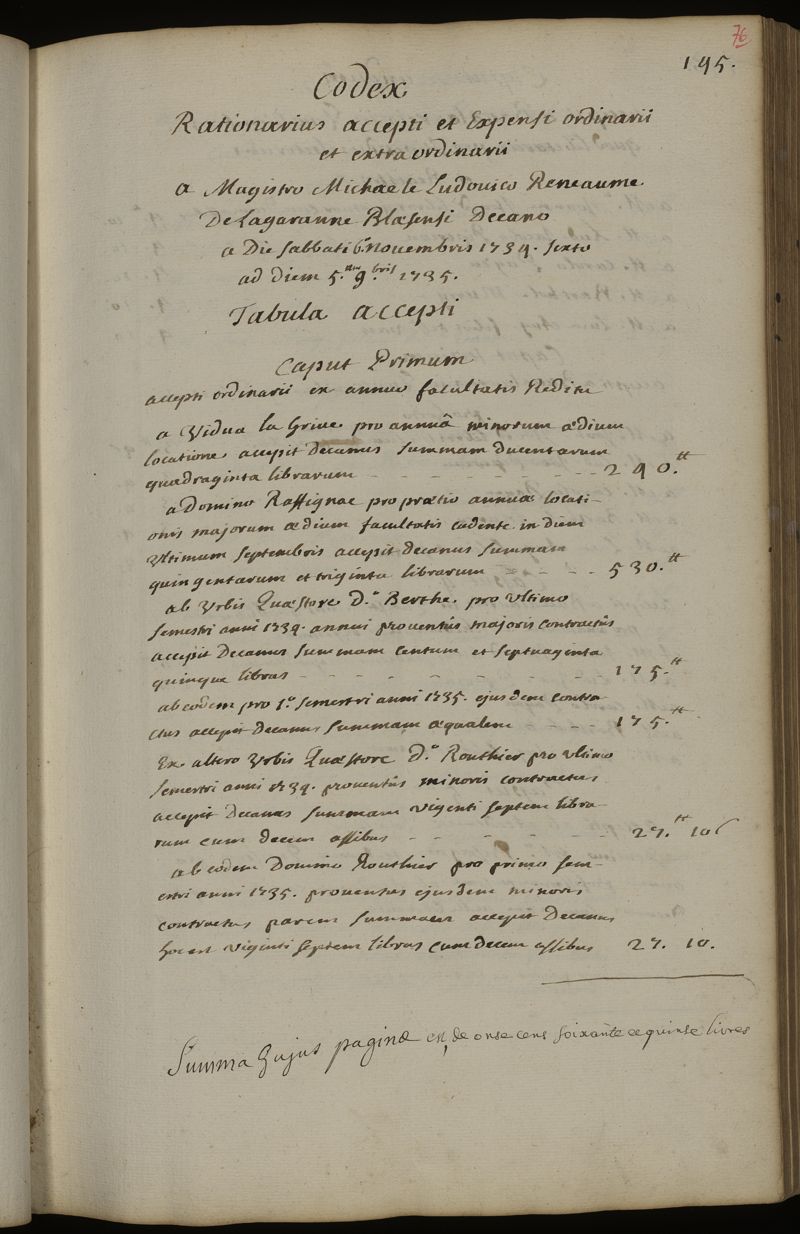 76
195.
Codex
Rationarius accepti et Expensi ordinarii
et extraordinarii
a Magistro Michaele Ludovico Reneaume.
De Lagaranne Blaesensi Decano
a Die sabbati 6.a novembris 1734. sexto
ad diem 5.tum 9.bris 1735.
Tabula accepti
Caput Primum
accepti ordinarii ex annuo facultatis Reditu
a Vidua la Grive. pro annuâ minorum aedium
locatione accepit Decanus summam ducentarum
quadraginta librarum - - - - - - - 240.tt
a Domino Rassignac pro praetio annuae locati-
onis majorum aedium facultatis cadente in diem
Ultimum septembris accepit decanus summam
quingentarum et triginta librarum - - - - 530.tt
ab Urbis Quaestore D.o Berthe. pro Ultimo
semestri anni 1734. annui proventûs majoris contractûs
accepit Decanus summam centum et septuaginta
quinque libras - - - - - - - - 175.tt
ab eodem pro 1.o semestri anni 1735. ejusdem contra-
ctus accepit decanus summam aequalem - - - - 175.tt
Ex altero Urbis Quaestore D.o Routhier pro ultimo
semestri anni 1734. proventûs minoris contractus
accepit Decanus summam vigenti septem libra-
rum cum decem assibus - - - - - - 27.tt 10s
ab eodem Domino Routhier pro primo sem-
estri anni 1735. proventus ejusdem minoris
contractus parem summam accepit Decanus
hoc est viginti septem libras cum decem assibus 27. 10.
Summa hujus paginae est, de onse cens soixante et quinse livres